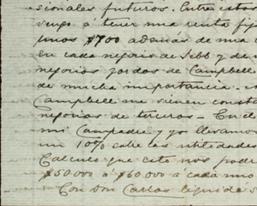 sionales futuros. Entre estos
vengo á tener una renta fij
unos $700 además de mia
en cada negocio de Sebb y de
negocios gordos de Campbell
de mucha importancia.
Campbell me vienen const
negocios de terceros. - En el
mi Compadre y yo llevamos
un 10% sobre las utilidades
Calculo que esto nos podr
$50000 á $60000 á cada uno
Con Don Carlos